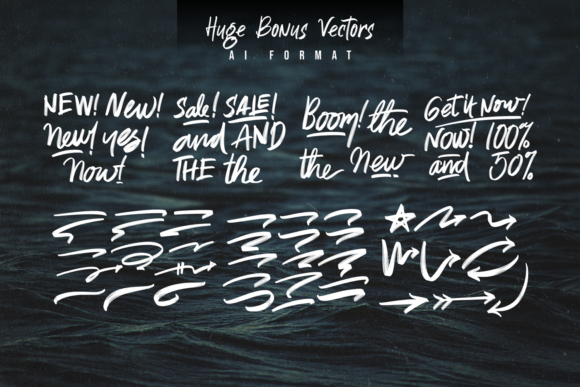 Huge Bonus Vectors
AI FORMAT
NEW! New!
New! yes!
Now!
Sale! SALE!
and AND
THE the
Boom! the
the New
Get it Now!
NOW! 100%
and 50%